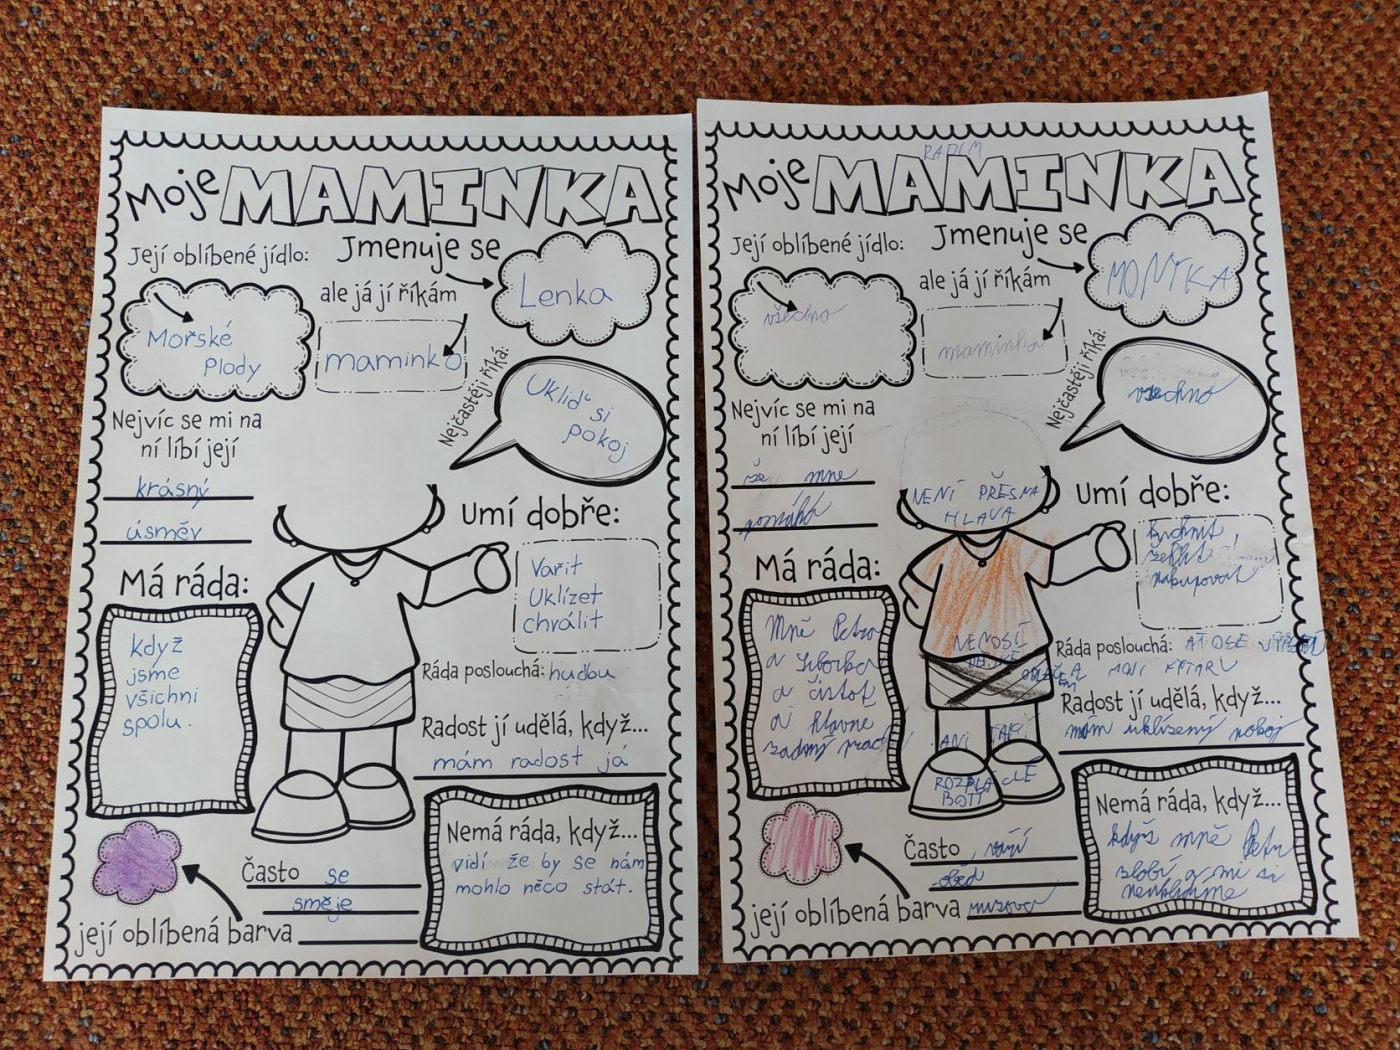 Moje MAMINKA
Její oblíbené jídlo:
Jmenuje se
Lenka
ale já jí říkám
Mořské
Plody
maminko
Nejčastěji říká:
Ukliď si
pokoj
Nejvíc se mi na
ní líbí její
krásný
úsměv
Umí dobře:
Vařit
Uklízet
chválit
Má ráda:
když
jsme
všichni
spolu.
Ráda poslouchá: hudbu
Radost jí udělá, když...
mám radost já
Nemá ráda, když...
vidí že by se nám
mohlo něco stát.
Často se
směje
její oblíbená barva
RADIM
Moje MAMINKA
Její oblíbené jídlo:
Jmenuje se
MONIKA
ale já jí říkám
všechno
maminka
Nejčastěji říká:
všechno
Nejvíc se mi na
ní líbí její
že mne
pomáhá
NENÍ PŘESNÁ
HLAVA
Umí dobře:
nakupovat
Má ráda:
Mně Petra
a
a čistot
a hlavne
žádný
Ráda poslouchá:
Radost jí udělá, když...
mám uklízený pokoj
ANI TAKÉ
BOTY
Nemá ráda, když...
když mně Petr
zlobí a mi si
neuklidíme
Často vaří
oběd
její oblíbená barva růžová